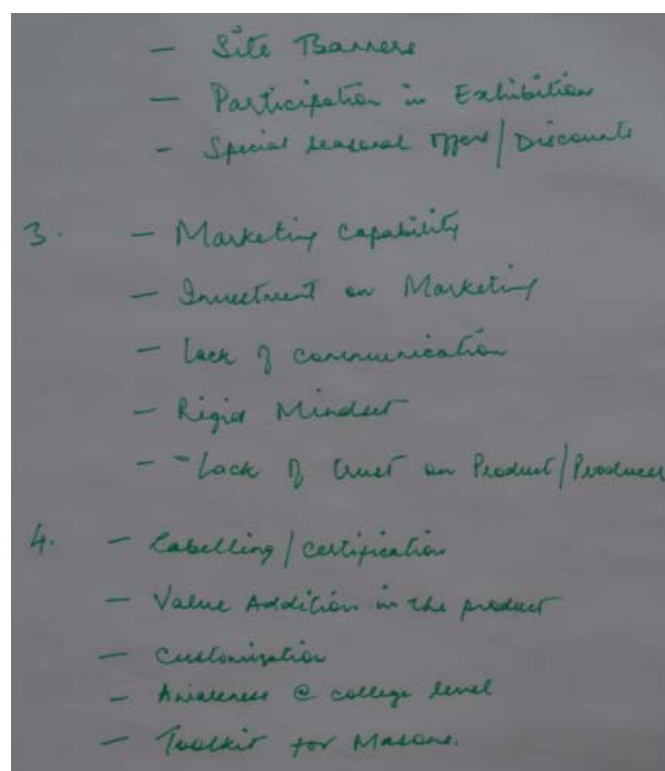 - Site Banners
- Participation in Exhibition
- Special seasonal offers/Discounts
3. - Marketing Capability
- Investment on Marketing
- Lack of communication
- Rigid Mindset
- - Lack of trust on Product/Producer
4. - Labelling/certification
- Value Addition in the product
- Customization
- Awareness @ college level
- Toolkit for Masons.